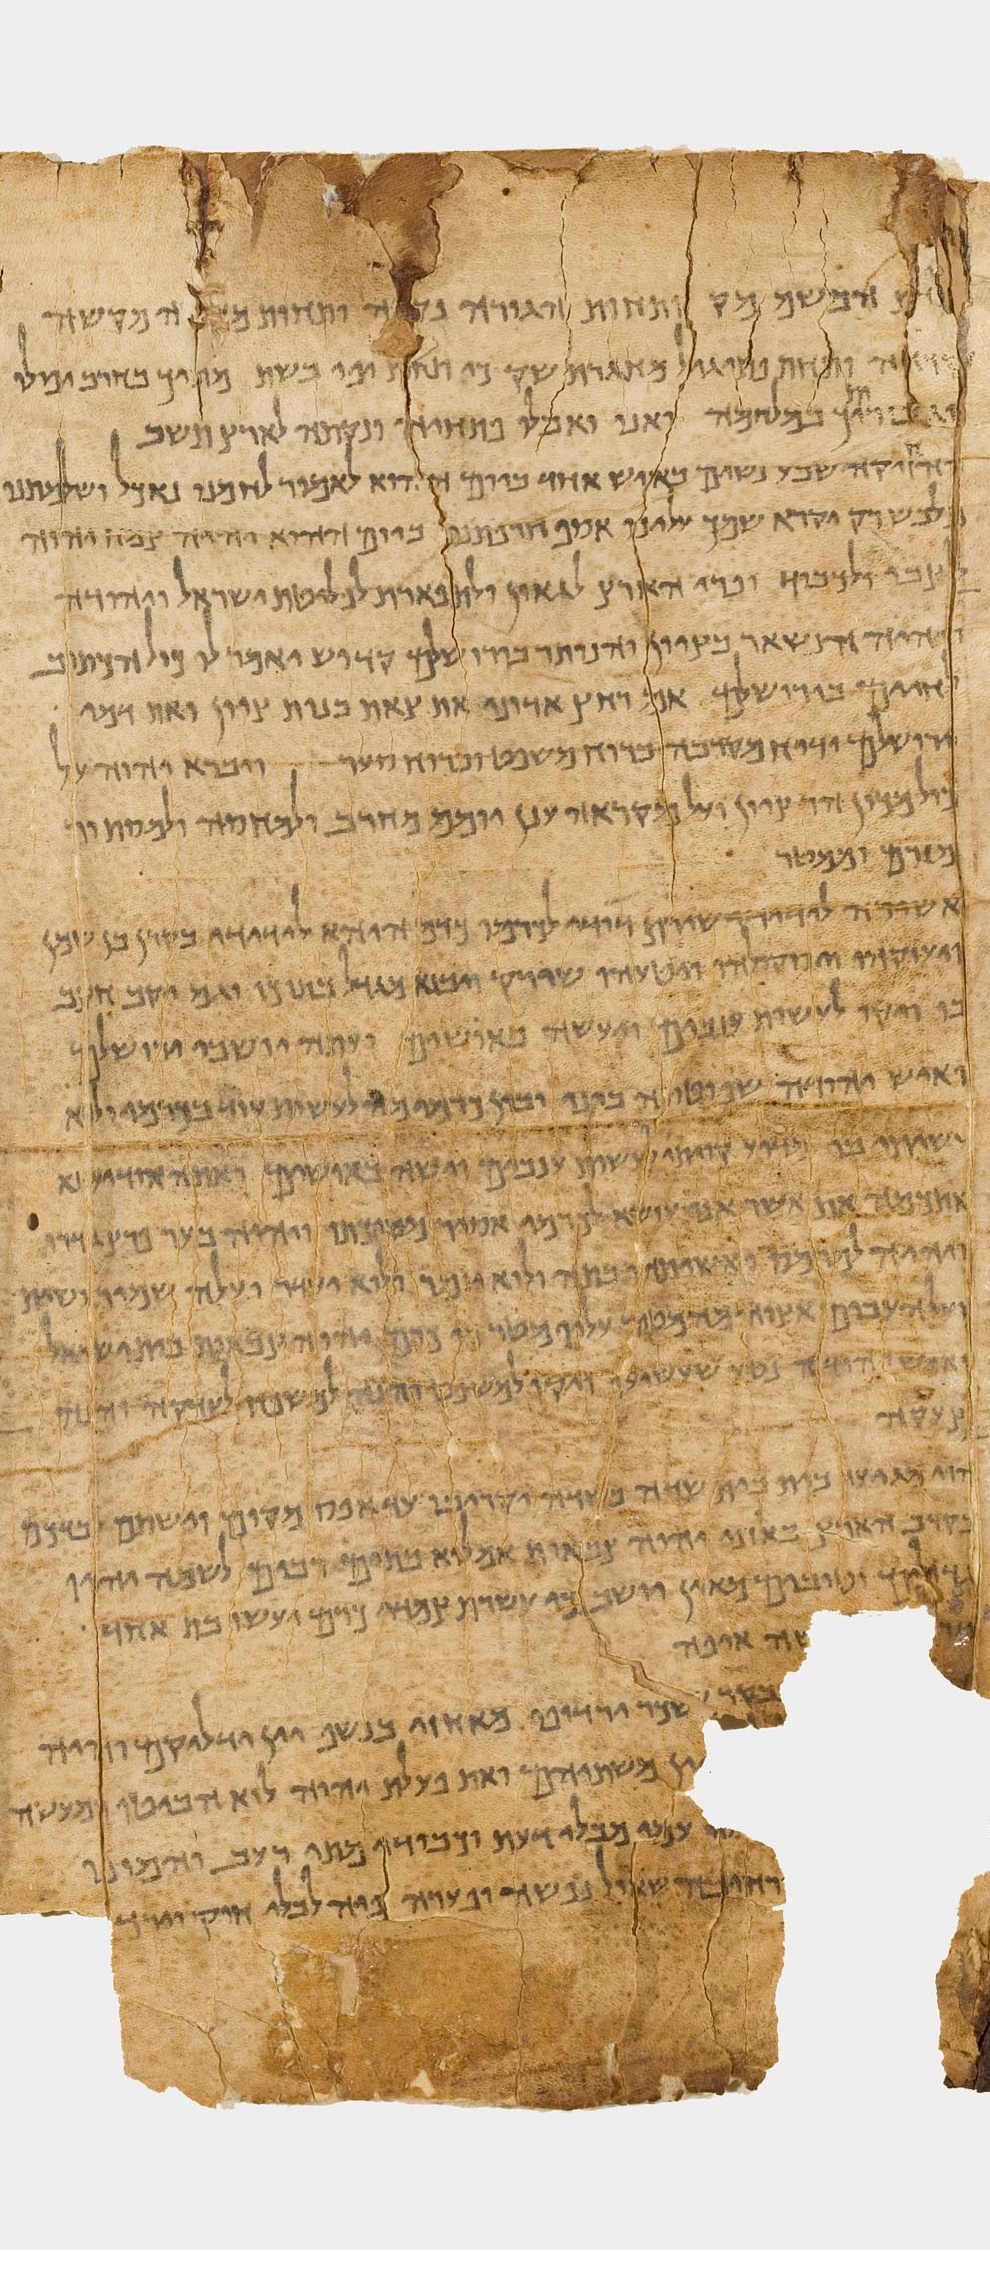 הבשמ מק ותחות הגורה נקפה ותחות מקשה
ותחת פתיגול מחגרת שק כי תחת יפי בשת מתיך בחרב יפולו
במלחמה ואנו ואבלו פתחיה ונקתה לארץ תשב
והחזיקה שבע נשים באיש אחד ביום ההוא לאמור לחמנו נאכל ושמלתנו
נלבש רק יקרא שמך עלינו אסף חרפתנו ביום ההוא יהיה צמח יהוה
ולכבוד ופרי הארץ לגאון ולתפארת לפליטת ישראל ויהודה
והיה הנשאר בציון והנותר בירושלם קדוש יאמר לו כול הכתוב
לחיים בירושלם אם רחץ אדוני את צאת בנות ציון ואת דמי
ירושלם ידיח מקרבה ברוח משפט וברוח סער ויברא יהוה על
כול מכון הר ציון ועל מקראה ענן יומם מחרב ולמחסה ולמסתור
מזרם וממטר
אשירה לידידי שירת דודי לכרמו כרם היה לידידי בקרן בן שמן
ויעזקהו ויסקלהו ויטעהו שורק מגדל בתוכו וגם יקב חצב
בו ויקו לעשות ענבים ויעשה באושים ועתה יושבי ירושלם
ואיש יהודה ביני ובין כרמי מה לעשות עוד בכרמי ולא
עשיתי בו מדוע קויתי לעשות ענבים וישה באושים ועתה אודיע נא
אתכמה את אשר אני עושה לכרמי אסיר ויהיה בער פרץ גדרו
ויהיה למרמס ואשיתהו בתה ולוא יזמר ולוא יעדר ועלה שמיר ושית
ועל העבים אצוה מהמטיר עליו מטר כי כרם יהוה צבאות בית ישראל
ואיש יהודה נטע שעשועו ויקו למשפט והנה למשפח לצדקה והנה
צעקה
הוי מגיעי בית בית שדה בשדה יקריבו עד אפס מקום וישבתם לבדכם
בקרב הארץ באוזני יהוה צבאות אם לוא בתים רבים לשמה יהיו
גדולים וטובים מאין יושב כי עשרת צמדי כרם יעשו בת אחד
איפה
בבקר שכר ירדופו מאחזי בנשף יין ידליקם והיה
משתיהם ואת פעלת יהוה לוא הביטו ומעשה
עמי מבלי דעת וכבודו מתי רעב והמונו
הרחיבה שאול נפשה ופערה פיה לבלי חוק וירד